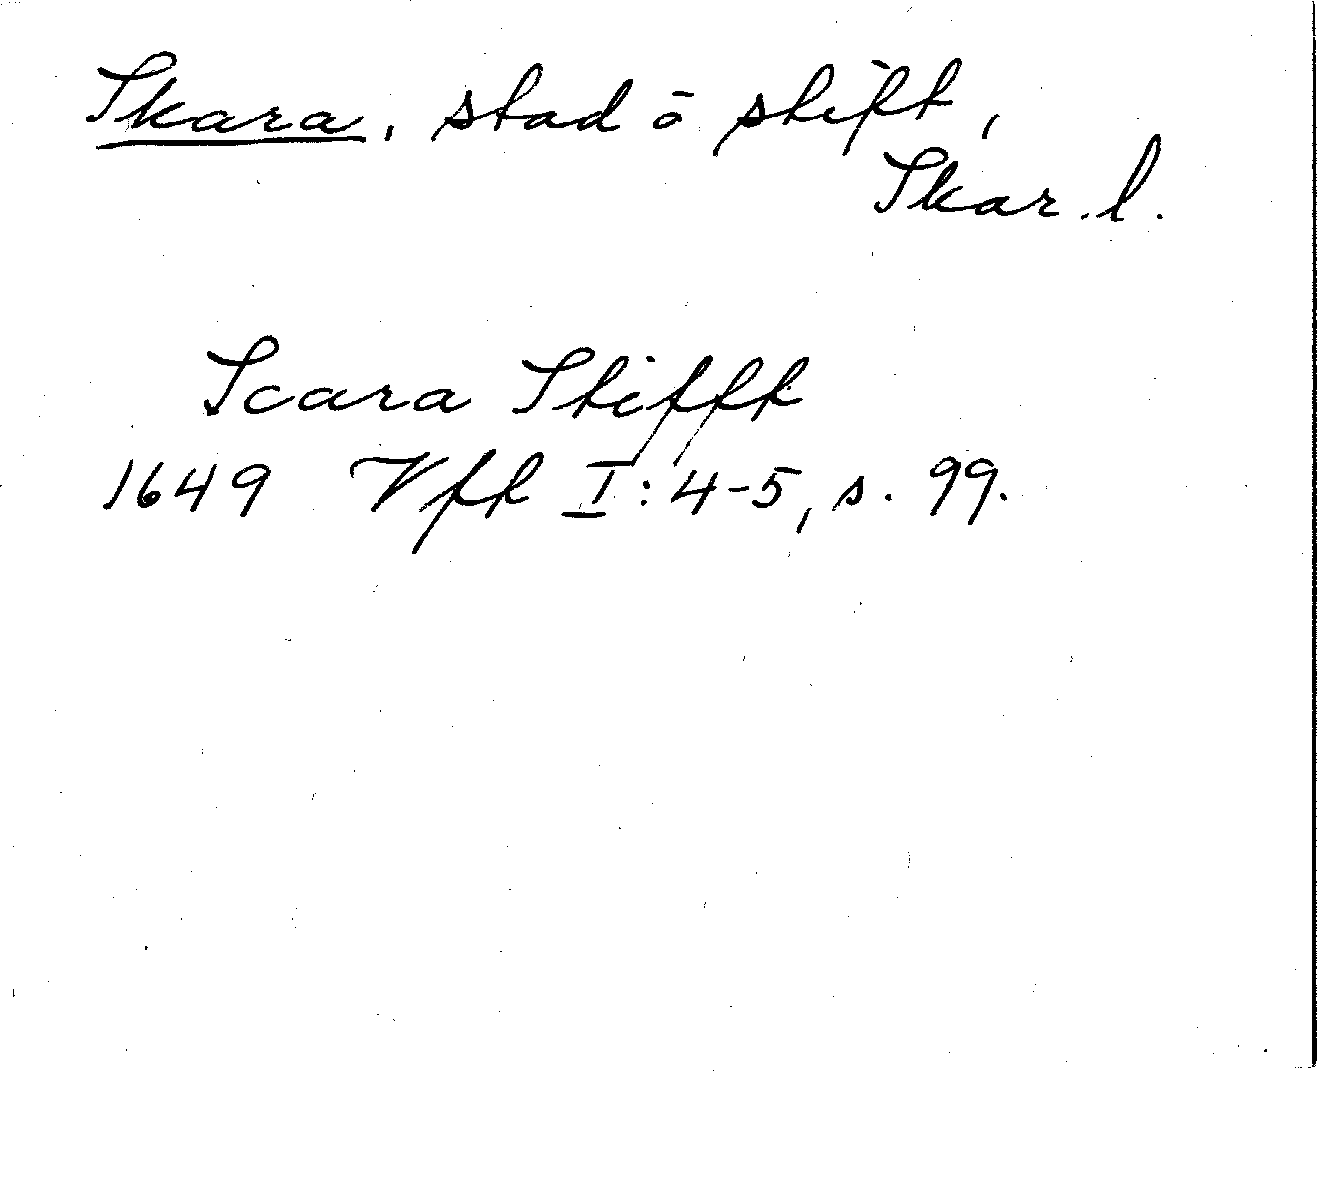 Skara, stad o stift,
Skar. l.
Scara Stifft
1649 Vft I: 4-5, s. 99.